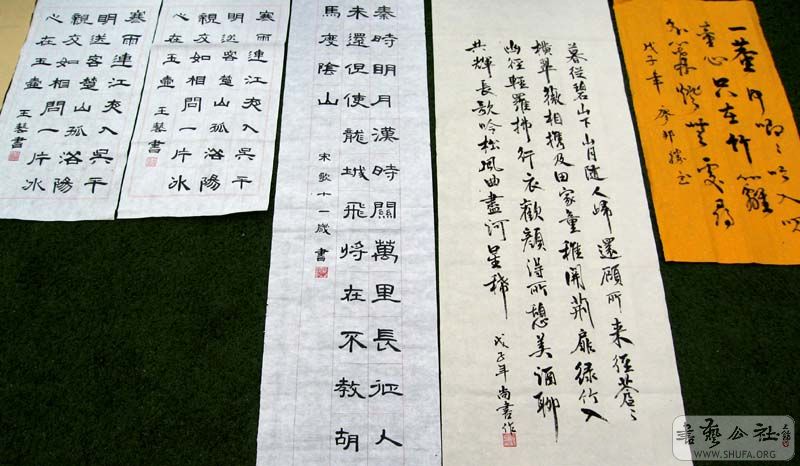 童心只在竹籬
戊子年
暮從碧山下山月隨人歸還顧所來徑蒼〻
橫翠微相攜及田家童稚開荊扉綠竹入
幽徑輕羅拂行衣歡顏得所憩美酒聊
共輝長歌吟松風曲盡河星稀
戊子年尚書作
秦時明月漢時關萬里長征人
未還但使龍城飛將在不教胡
馬度陰山
宋 十一歲書
寒雨連江夜入吳平
明送客楚山孤洛陽
親友如相問一片冰
心在玉壺
王 書
寒雨連江夜入吳平
明送客楚山孤洛陽
親友如相問一片冰
心在玉壺
王 書
書藝公社
WWW.SHUFA.ORG